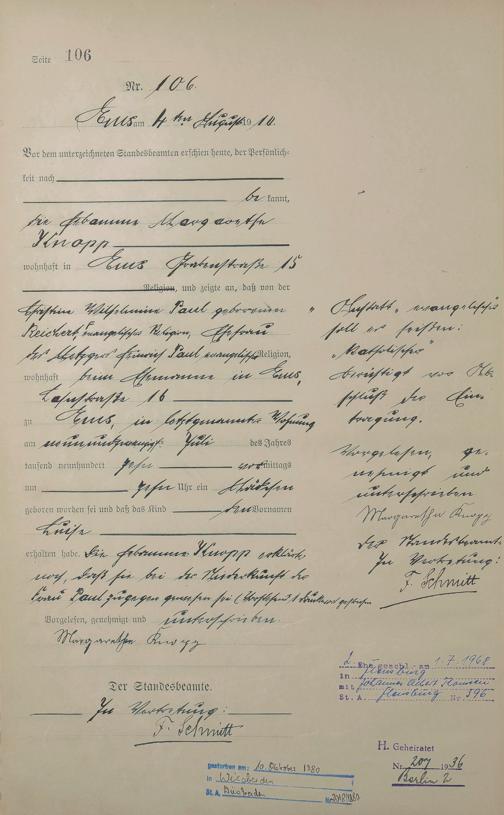 Seite 106
Nr. 106.
Ems am 4ten August 1910.
Vor dem unterzeichneten Standesbeamten erschien heute, der Persönlich-
keit nach
be kannt,
die Hebamme Margarethe
Knopp
wohnhaft in Ems Grabenstraße 15
Religion, und zeigte an, daß von der
Christine Wilhelmine Paul geborenen
Reichert, evangelischer Religion, Ehefrau
des Metzgers Heinrich Paul evangelischer Religion,
wohnhaft beim Ehemanne in Ems,
Lahnstraße 16
zu Ems, in letztgenannter Wohnung
am neunundzwanzigsten Juli des Jahres
tausend neunhundert zehn vormittags
um zehn Uhr ein Mädchen
geboren worden sei und daß das Kind den Vornamen
Luise
erhalten habe. Die Hebamme Knopp erklärte
noch, daß sie bei der Niederkunft der
Frau Paul zugegen gewesen sei (Vorstehend 1 Druckwort gestrichen
Vorgelesen, genehmigt und unterschrieben.
Margarethe Knopp
Der Standesbeamte.
In Vertretung:
F. Schmitt
"Anstatt" evangelischer
soll es heißen:
"Katholischer"
berichtigt vor Ab-
schluß der Ein-
tragung.
Vorgelesen, ge-
nehmigt und
unterschrieben
Margaretha Knopp
Der Standesbeamte
In Vertretung:
F. Schmitt
2. Ehe geschl. am 1.7.1968
in Flensburg
mit Johannes Hansen
St. A. Flensburg Nr. 396
H. Geheiratet
Nr. 207 1936
Berlin 2
gestorben am: 10. Oktober 1980
in Wiesbaden
St. A. Wiesbaden